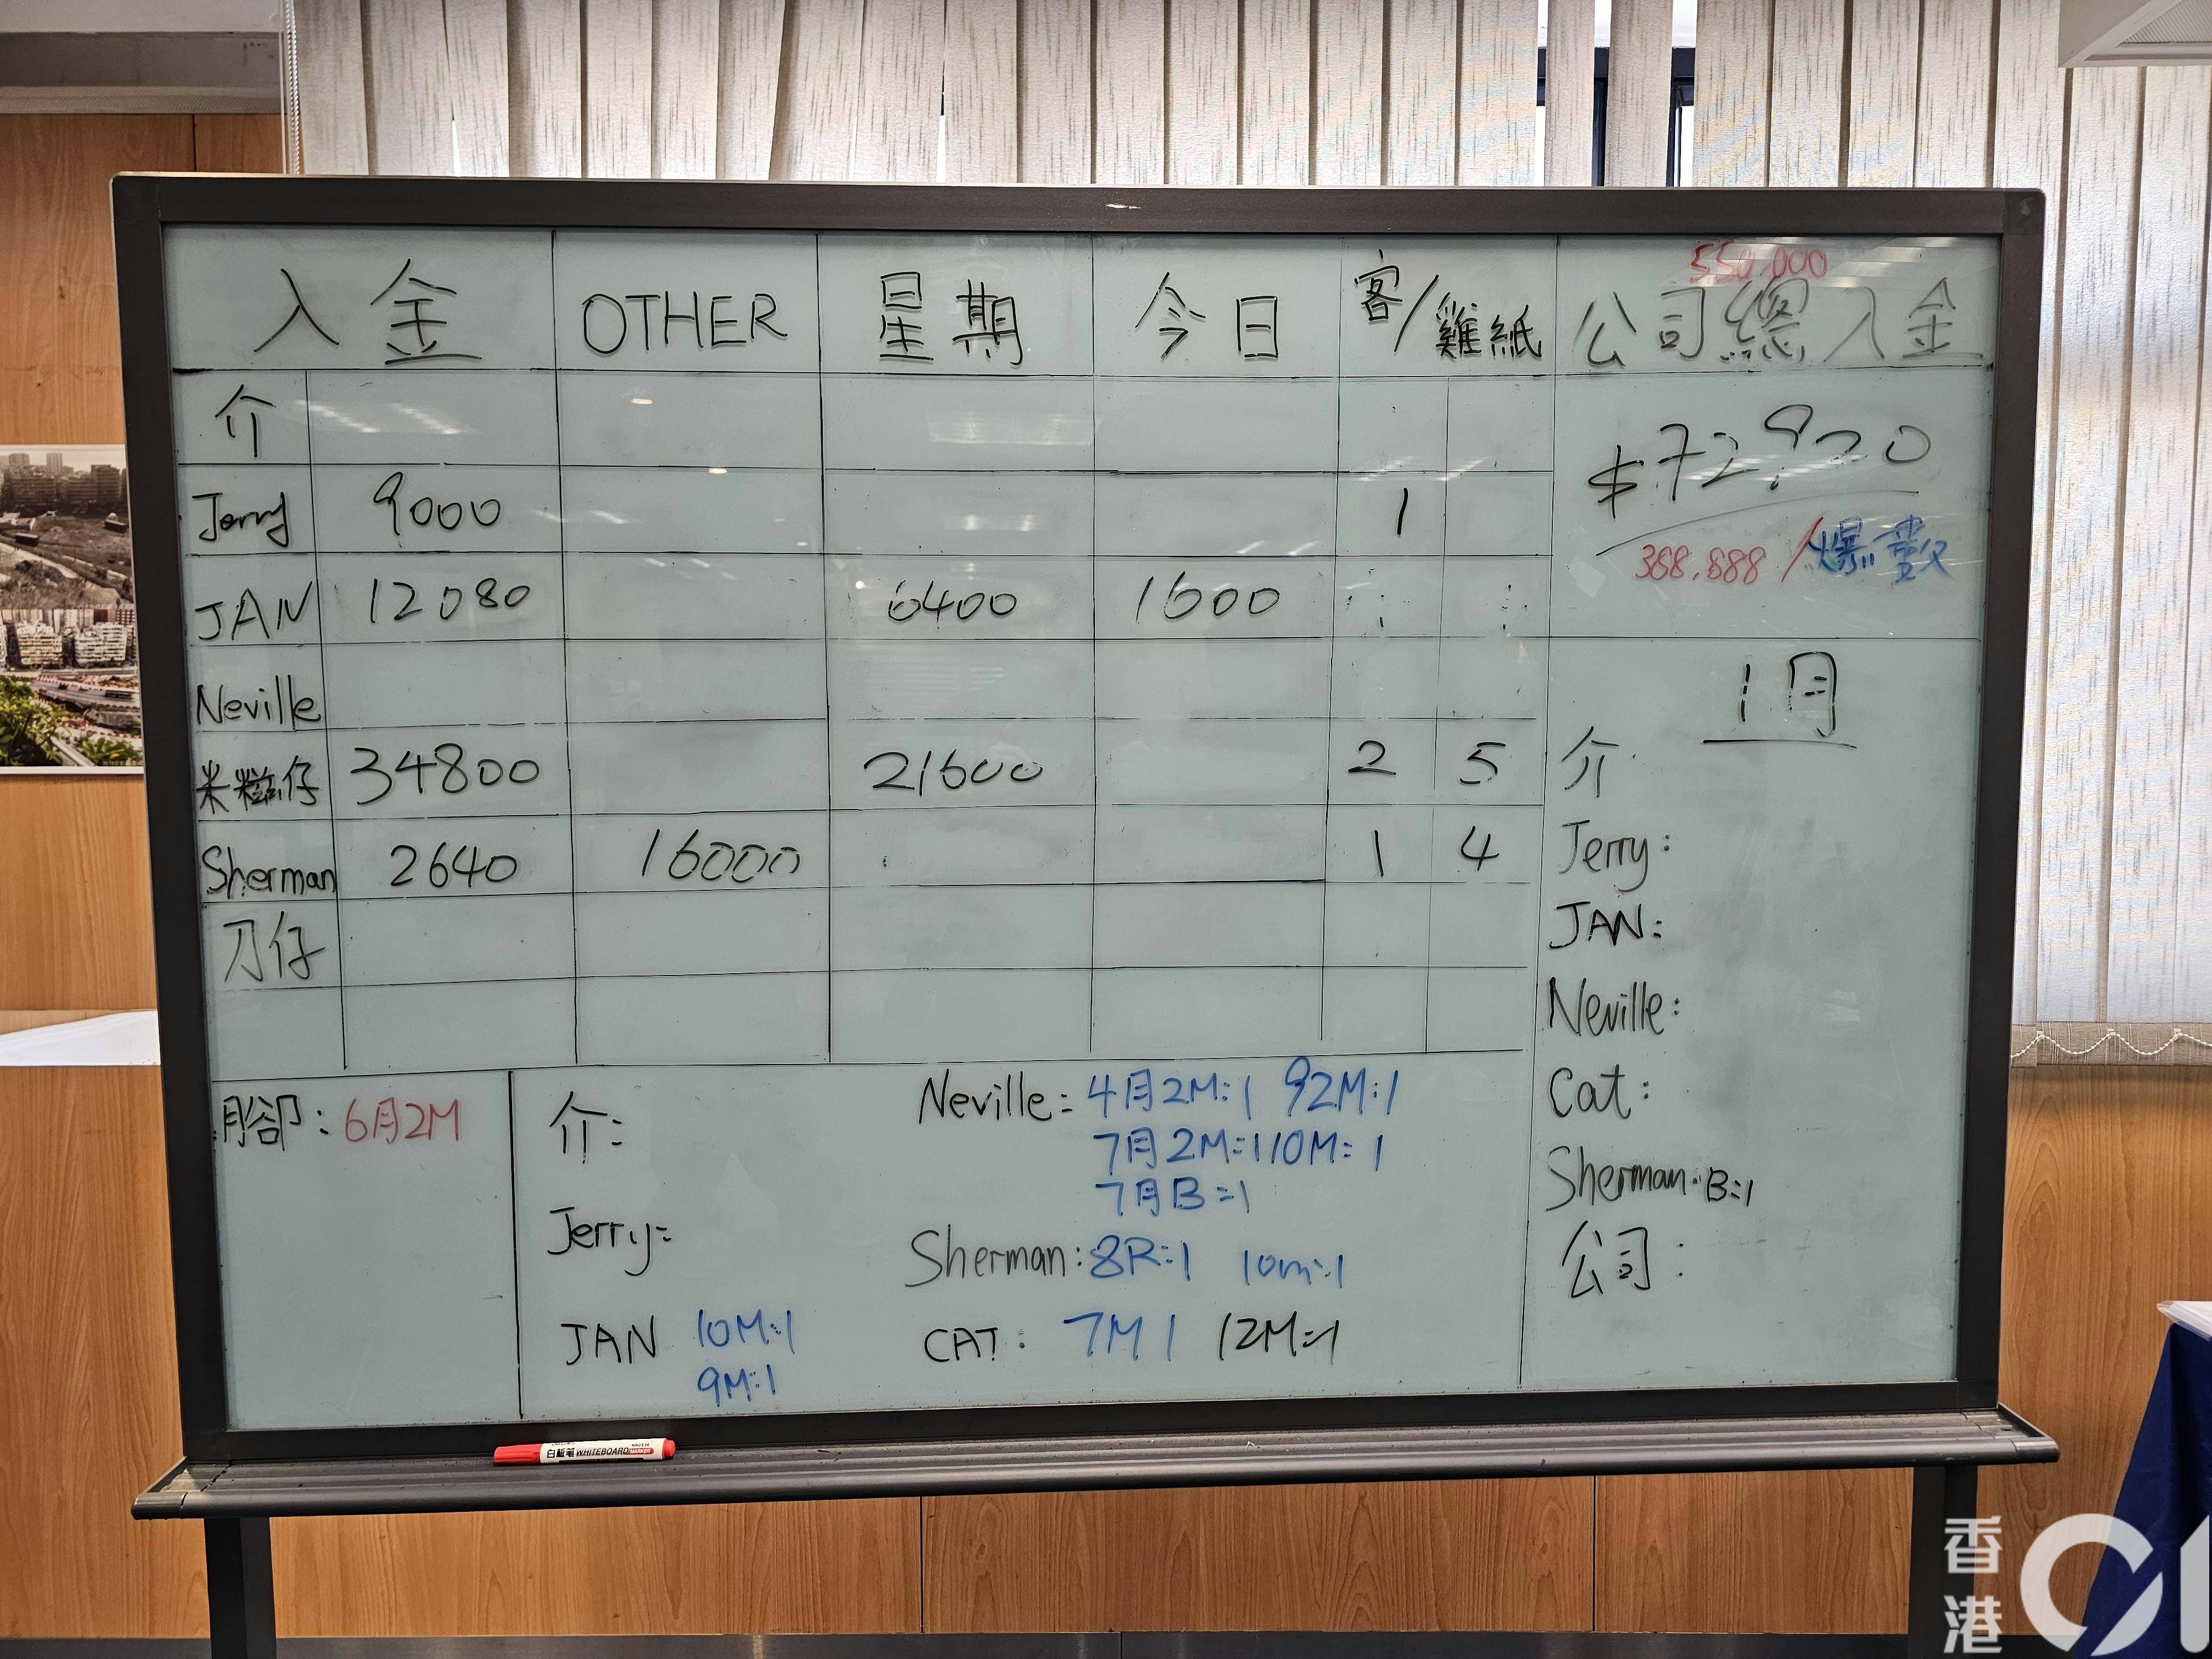 入金 OTHER 星期 今日 客/雞紙
550,000
公司總入金
介
Jerry 9000 1
JAN 12080 6400 1600
Neville
米糍仔 34800 21600 2 5
Sherman 2640 16000 1 4
刀仔
$72,920
388,888/爆數
1月
介
Jerry:
JAN:
Neville:
Cat:
Sherman. B=1
公司:
腳: 6月2M
介:
Jerry=
JAN 10M=1
9M=1
Neville= 4月2M=1 92M=1
7月2M=1 10M=1
7月B=1
Sherman: 8R=1 10m=1
CAT: 7M 1 12M=1
白板笔 WHITEBOARD MARKER
香港01